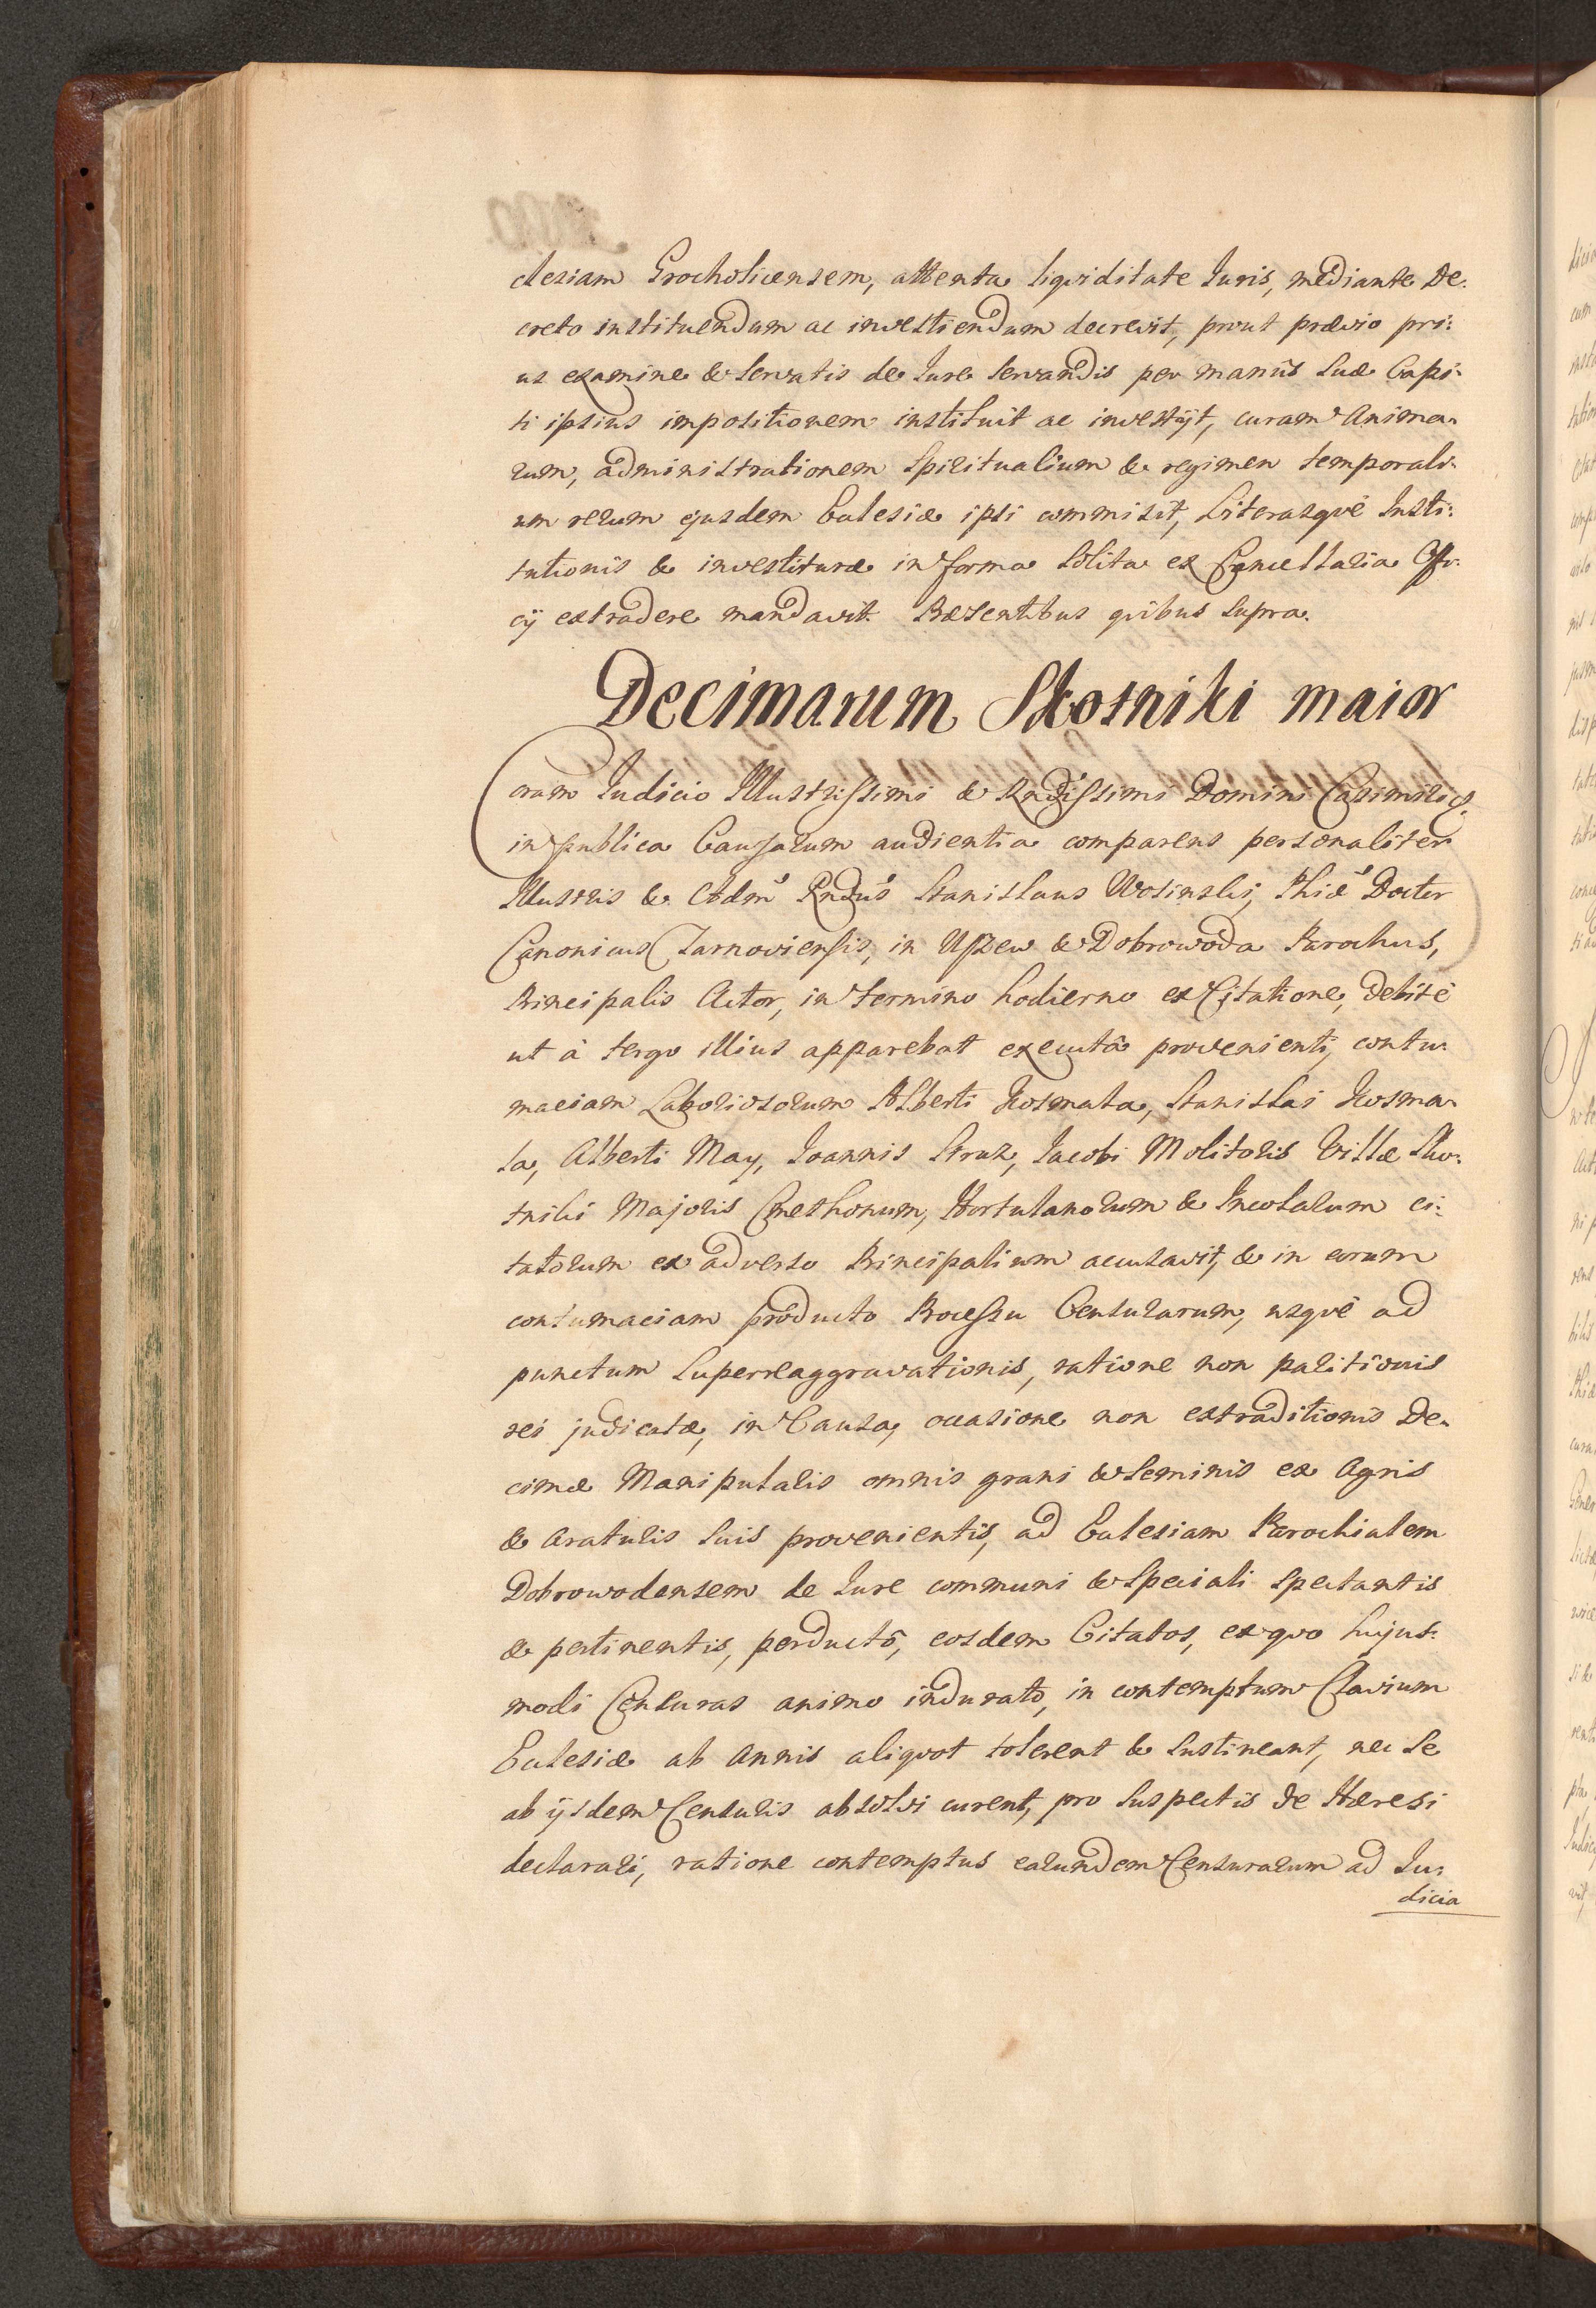 clesiam Grocholicensem, attenta liqviditate Juris, mediante De:
creto instituendum ac investiendum decrevit, prout prævio pri:
us examine & servatis de Jure servandis per manûs suæ Capi:
ti ipsius impositionem instituit ac investijt, curam Anima:
rum, administrationem Spiritualium & regimen temporali:
um rerum ejusdem Ecclesiæ ipsi commisit, Literasqvè Insti:
tutionis & investituræ in forma solita ex Cancellaria Offi:
cij extradere mandavit. Præsentibus qvibus supra.
Decimarum Skotniki maior
Coram Judicio Illustrissimi & Rndissimi Domini Casimiri
in publica Causarum audientia comparens personaliter
Illustris & Adm Rndus Stanislaus Wosinski, Phiæ Doctor
Canonicus Tarnoviensis, in Uszew & Dobrowoda Parochus,
Principalis Actor, in termino hodierno ex Citatione, debitè
ut à tergo illius apparebat executâ provenienti, contu:
maciam Laboriosorum Alberti Kosmala, Stanislai Kosma:
la, Alberti May, Joannis Struz, Jacobi Molitoris Villæ Sko:
tniki Majoris Cmethonum, Hortulanorum & Incolarum ci:
tatorum ex adverso Principalium accusavit, & in eorum
contumaciam producto Processu Censurarum, usqvè ad
punctum superreaggravationis, ratione non paritionis
rei judicatæ, in Causa, occasione non extraditionis De:
cimæ Manipularis omnis grani & seminis ex Agris
& araturis suis provenientis, ad Ecclesiam Parochialem
Dobrowodensem de Jure communi & speciali spectantis
& pertinentis, perductô, eosdem Citatos, ex qvo hujus:
modi Censuras animo indurato, in contemptum Clavium
Ecclesiæ ab Annis aliqvot tolerent & sustineant, nec se
ab ijsdem Censuris absolvi curent, pro suspectis de Hæresi
declarari, ratione contemptus earundem Censurarum ad Ju:
dicia